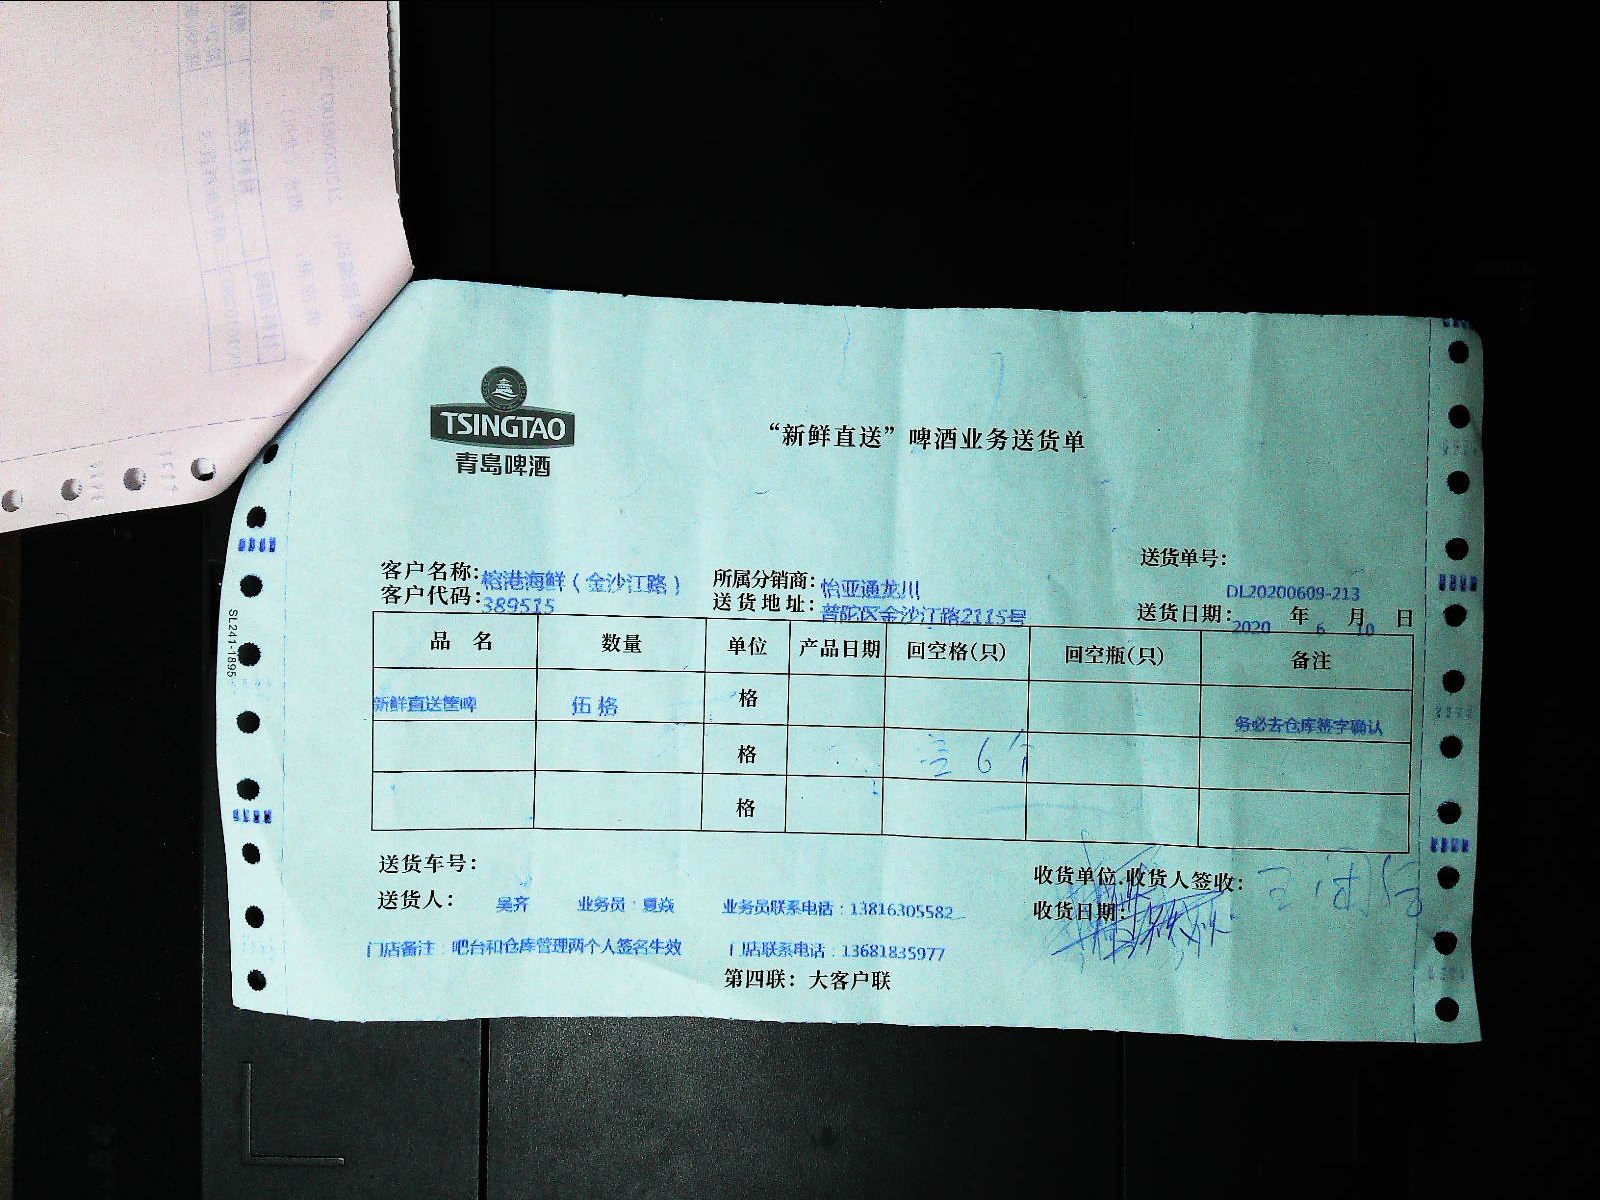 TSINGTAO
青岛啤酒
“新鲜直送”啤酒业务送货单
送货单号：
DL20200609-213
客户名称：榕港海鲜（金沙江路） 所属分销商：怡亚通龙川
客户代码：389515 送货地址：普陀区金沙江路2115号 送货日期：2020 年 6 月 10 日
品 名 数量 单位 产品日期 回空格(只) 回空瓶(只) 备注
新鲜直送筐啤 伍格 格 务必去仓库签字确认
格 6个
格
送货车号：
送货人： 吴齐 业务员：夏焱 业务员联系电话：13816305582 收货单位.收货人签收：
收货日期：
门店备注：吧台和仓库管理两个人签名生效 门店联系电话：13681835977
第四联：大客户联
SL241-1895